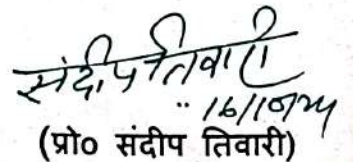 संदीप तिवारी
16/10/24
(प्रो० संदीप तिवारी)